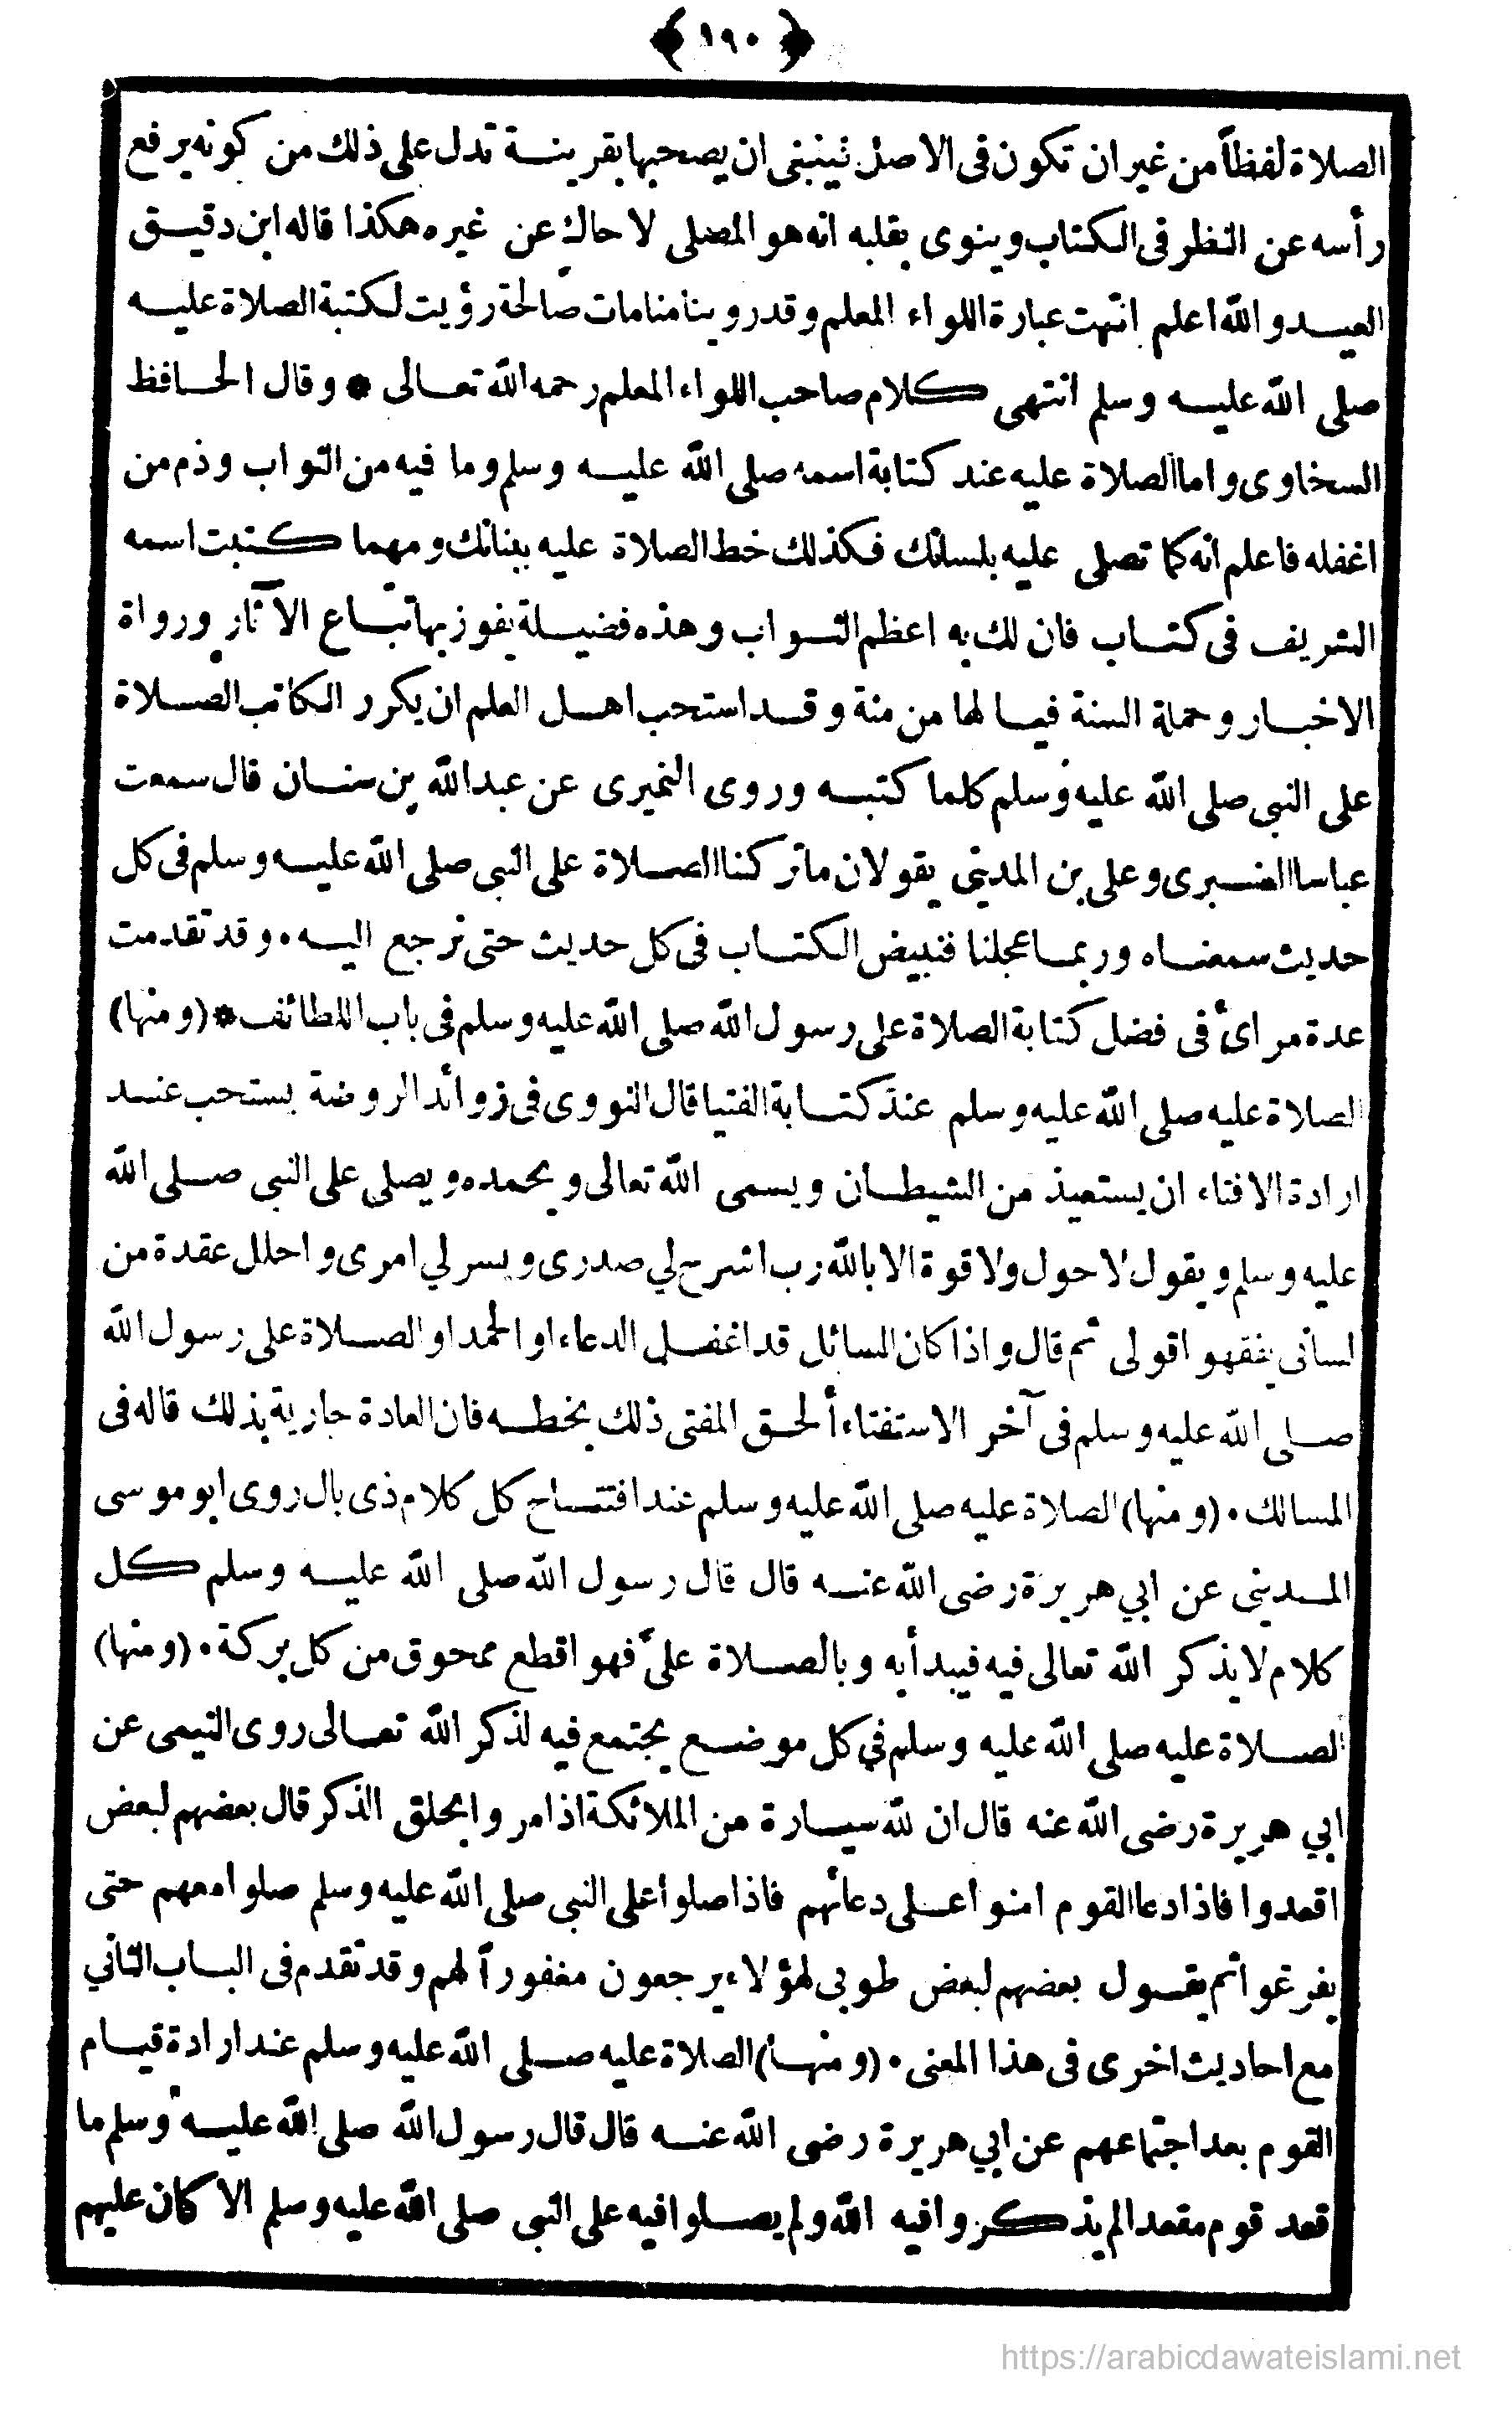 ﴿ ١٩٠ ﴾
الصلاة لفظاً من غير ان تكون فى الاصل فينبغى ان يصحبها بقرينة تدل على ذلك من كونه يرفع
رأسه عن النظر فى الكتاب وينوى بقلبه انه هو المصلى لا حاك عن غيره هكذا قاله ابن دقيق
العيد والله اعلم انتهت عبارة اللواء المعلم وقد روينا منامات صالحة رؤيت لكتبة الصلاة عليه
صلى الله عليه وسلم انتهى كلام صاحب اللواء المعلم رحمه الله تعالى * وقال الحافظ
السخاوى واما الصلاة عليه عند كتابة اسمه صلى الله عليه وسلم وما فيه من الثواب وذم من
اغفله فاعلم انه كما تصلى عليه بلسانك فكذلك خط الصلاة عليه ببنانك ومهما كتبت اسمه
الشريف فى كتاب فان لك به اعظم الثواب وهذه فضيلة يفوز بها تباع الآثار ورواة
الاخبار وحملة السنة فيا لها من منة وقد استحب اهل العلم ان يكرر الكاتب الصلاة
على النبى صلى الله عليه وسلم كلما كتبه وروى النميرى عن عبد الله بن سنان قال سمعت
عباسا العنبرى وعلى بن المدينى يقولان ما تركنا الصلاة على النبى صلى الله عليه وسلم فى كل
حديث سمعناه وربما عجلنا فنبيض الكتاب فى كل حديث حتى نرجع اليه • وقد تقدمت
عدة مرائ فى فضل كتابة الصلاة على رسول الله صلى الله عليه وسلم فى باب اللطائف * (ومنها)
الصلاة عليه صلى الله عليه وسلم عند كتابة الفتيا قال النووى فى زوائد الروضة يستحب عند
ارادة الافتاء ان يستعيذ من الشيطان ويسمى الله تعالى ويحمده ويصلى على النبى صلى الله
عليه وسلم ويقول لا حول ولا قوة الا بالله رب اشرح لي صدرى ويسر لي امرى واحلل عقدة من
لسانى يفقهوا قولى ثم قال واذا كان السائل قد اغفل الدعاء او الحمد او الصلاة على رسول الله
صلى الله عليه وسلم فى آخر الاستفتاء ألحق المفتى ذلك بخطه فان العادة جارية بذلك قاله فى
المسالك • (ومنها) الصلاة عليه صلى الله عليه وسلم عند افتتاح كل كلام ذى بال روى ابو موسى
المدينى عن ابي هريرة رضى الله عنه قال قال رسول الله صلى الله عليه وسلم كل
كلام لا يذكر الله تعالى فيه فيبدأ به وبالصلاة علىّ فهو اقطع ممحوق من كل بركة • (ومنها)
الصلاة عليه صلى الله عليه وسلم في كل موضع يجتمع فيه لذكر الله تعالى روى التيمى عن
ابي هريرة رضى الله عنه قال ان لله سيارة من الملائكة اذا مروا بحلق الذكر قال بعضهم لبعض
اقعدوا فاذا دعا القوم امنوا على دعائهم فاذا صلوا على النبى صلى الله عليه وسلم صلوا معهم حتى
يفرغوا ثم يقول بعضهم لبعض طوبى لهؤلاء يرجعون مغفوراً لهم وقد تقدم فى الباب الثاني
مع احاديث اخرى فى هذا المعنى • (ومنها) الصلاة عليه صلى الله عليه وسلم عند ارادة قيام
القوم بعد اجتماعهم عن ابي هريرة رضى الله عنه قال قال رسول الله صلى الله عليه وسلم ما
قعد قوم مقعدا لم يذكروا فيه الله ولم يصلوا فيه على النبى صلى الله عليه وسلم الا كان عليهم
https://arabicdawateislami.net